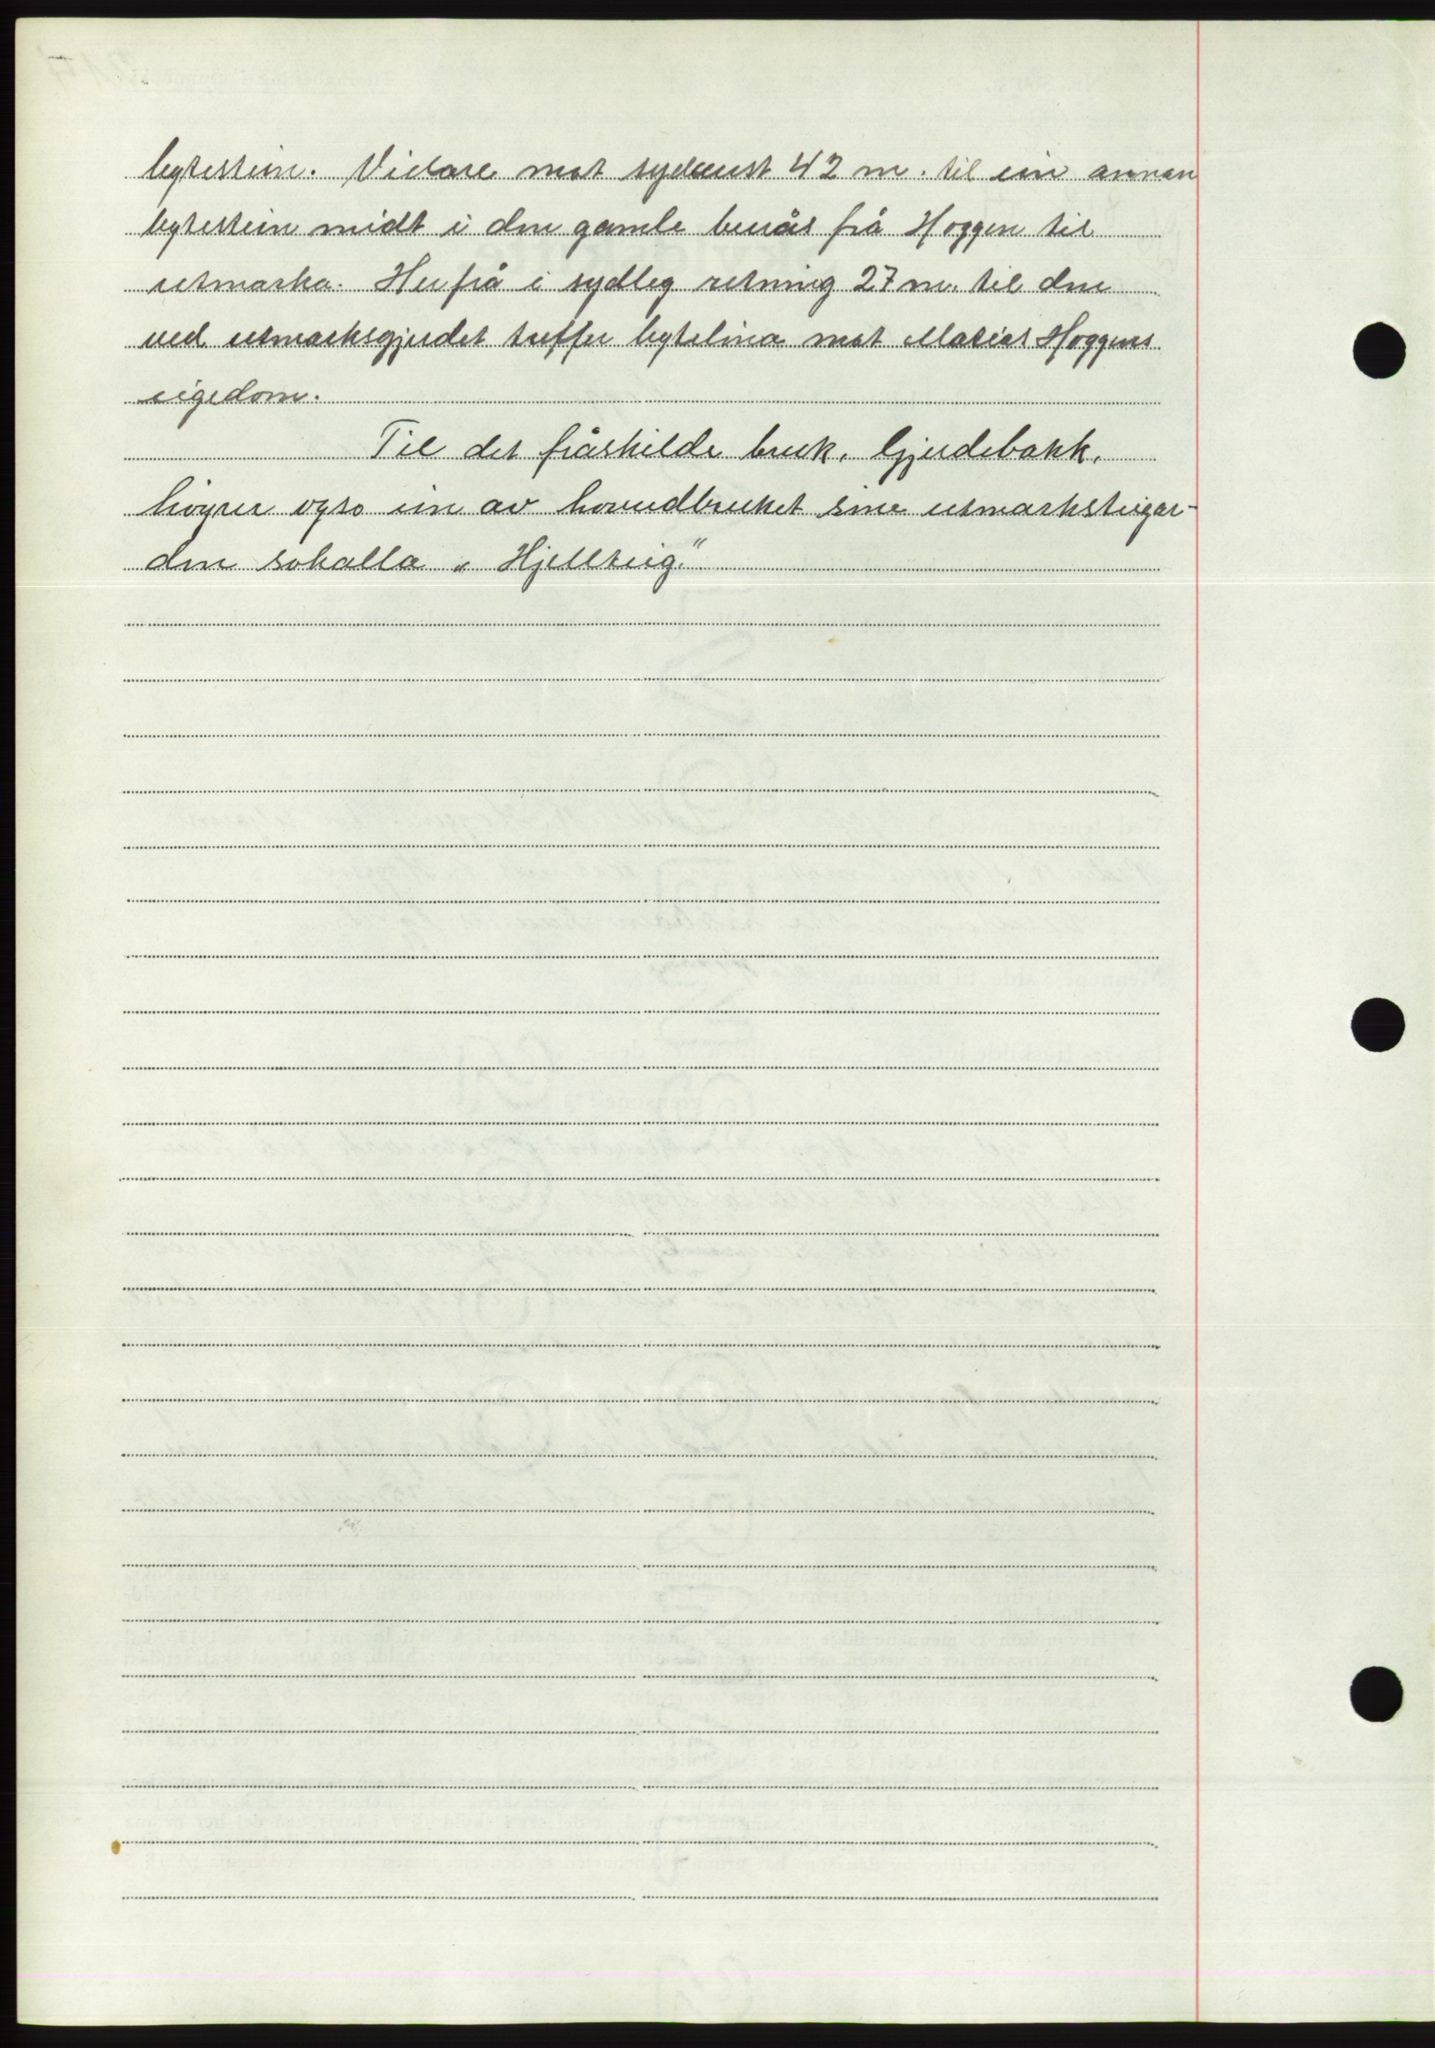 bytestein. Vidare mot sydaust 42 m. til ein annan
bytestein midt i den gamle burås frå Hoggen til
utmarka. Herfrå i sydleg retning 27 m. til den
ved utmarksgjerdet treffer bytelina mot Matias Hoggens
eigedom.
Til det fråskilde bruk, Gjerdebakk,
høyrer ogso ein av hovudbruket sine utmarksteigar-
den sokalla „Hjellteig."